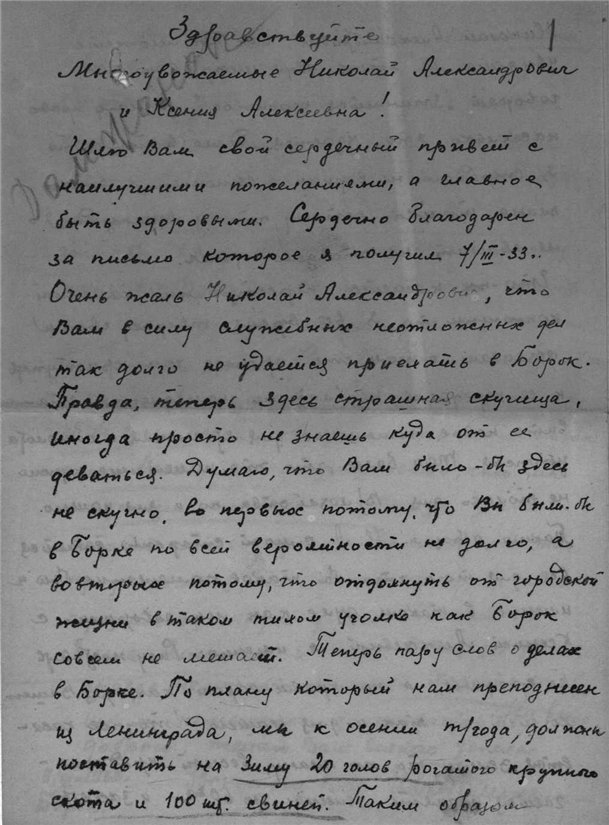 Здравствуйте 1
Многоуважаемые Николай Александрович
и Ксения Алексеевна!
Шлю Вам свой сердечный привет с
наилучшими пожеланиями, а главное
быть здоровыми. Сердечно благодарен
за письмо которое я получил 7/III-33..
Очень жаль Николай Александрович, что
Вам в силу служебных неотложных дел
так долго не удается приехать в Борок.
Правда, теперь здесь страшная скучища,
иногда просто не знаешь куда от ее
деваться. Думаю, что Вам было-бы здесь
не скучно, во первых потому, что Вы были-бы
в Борке по всей вероятности не долго, а
вовторых потому, что отдохнуть от городской
жизни в таком тихом уголке как Борок
совсем не мешает. Теперь пару слов о делах
в Борке. По плану который нам преподнесен
из Ленинграда, мы к осени т/года, должны
поставить на зиму 20 голов рогатого крупного
скота и 100 шт. свиней. Таким образом